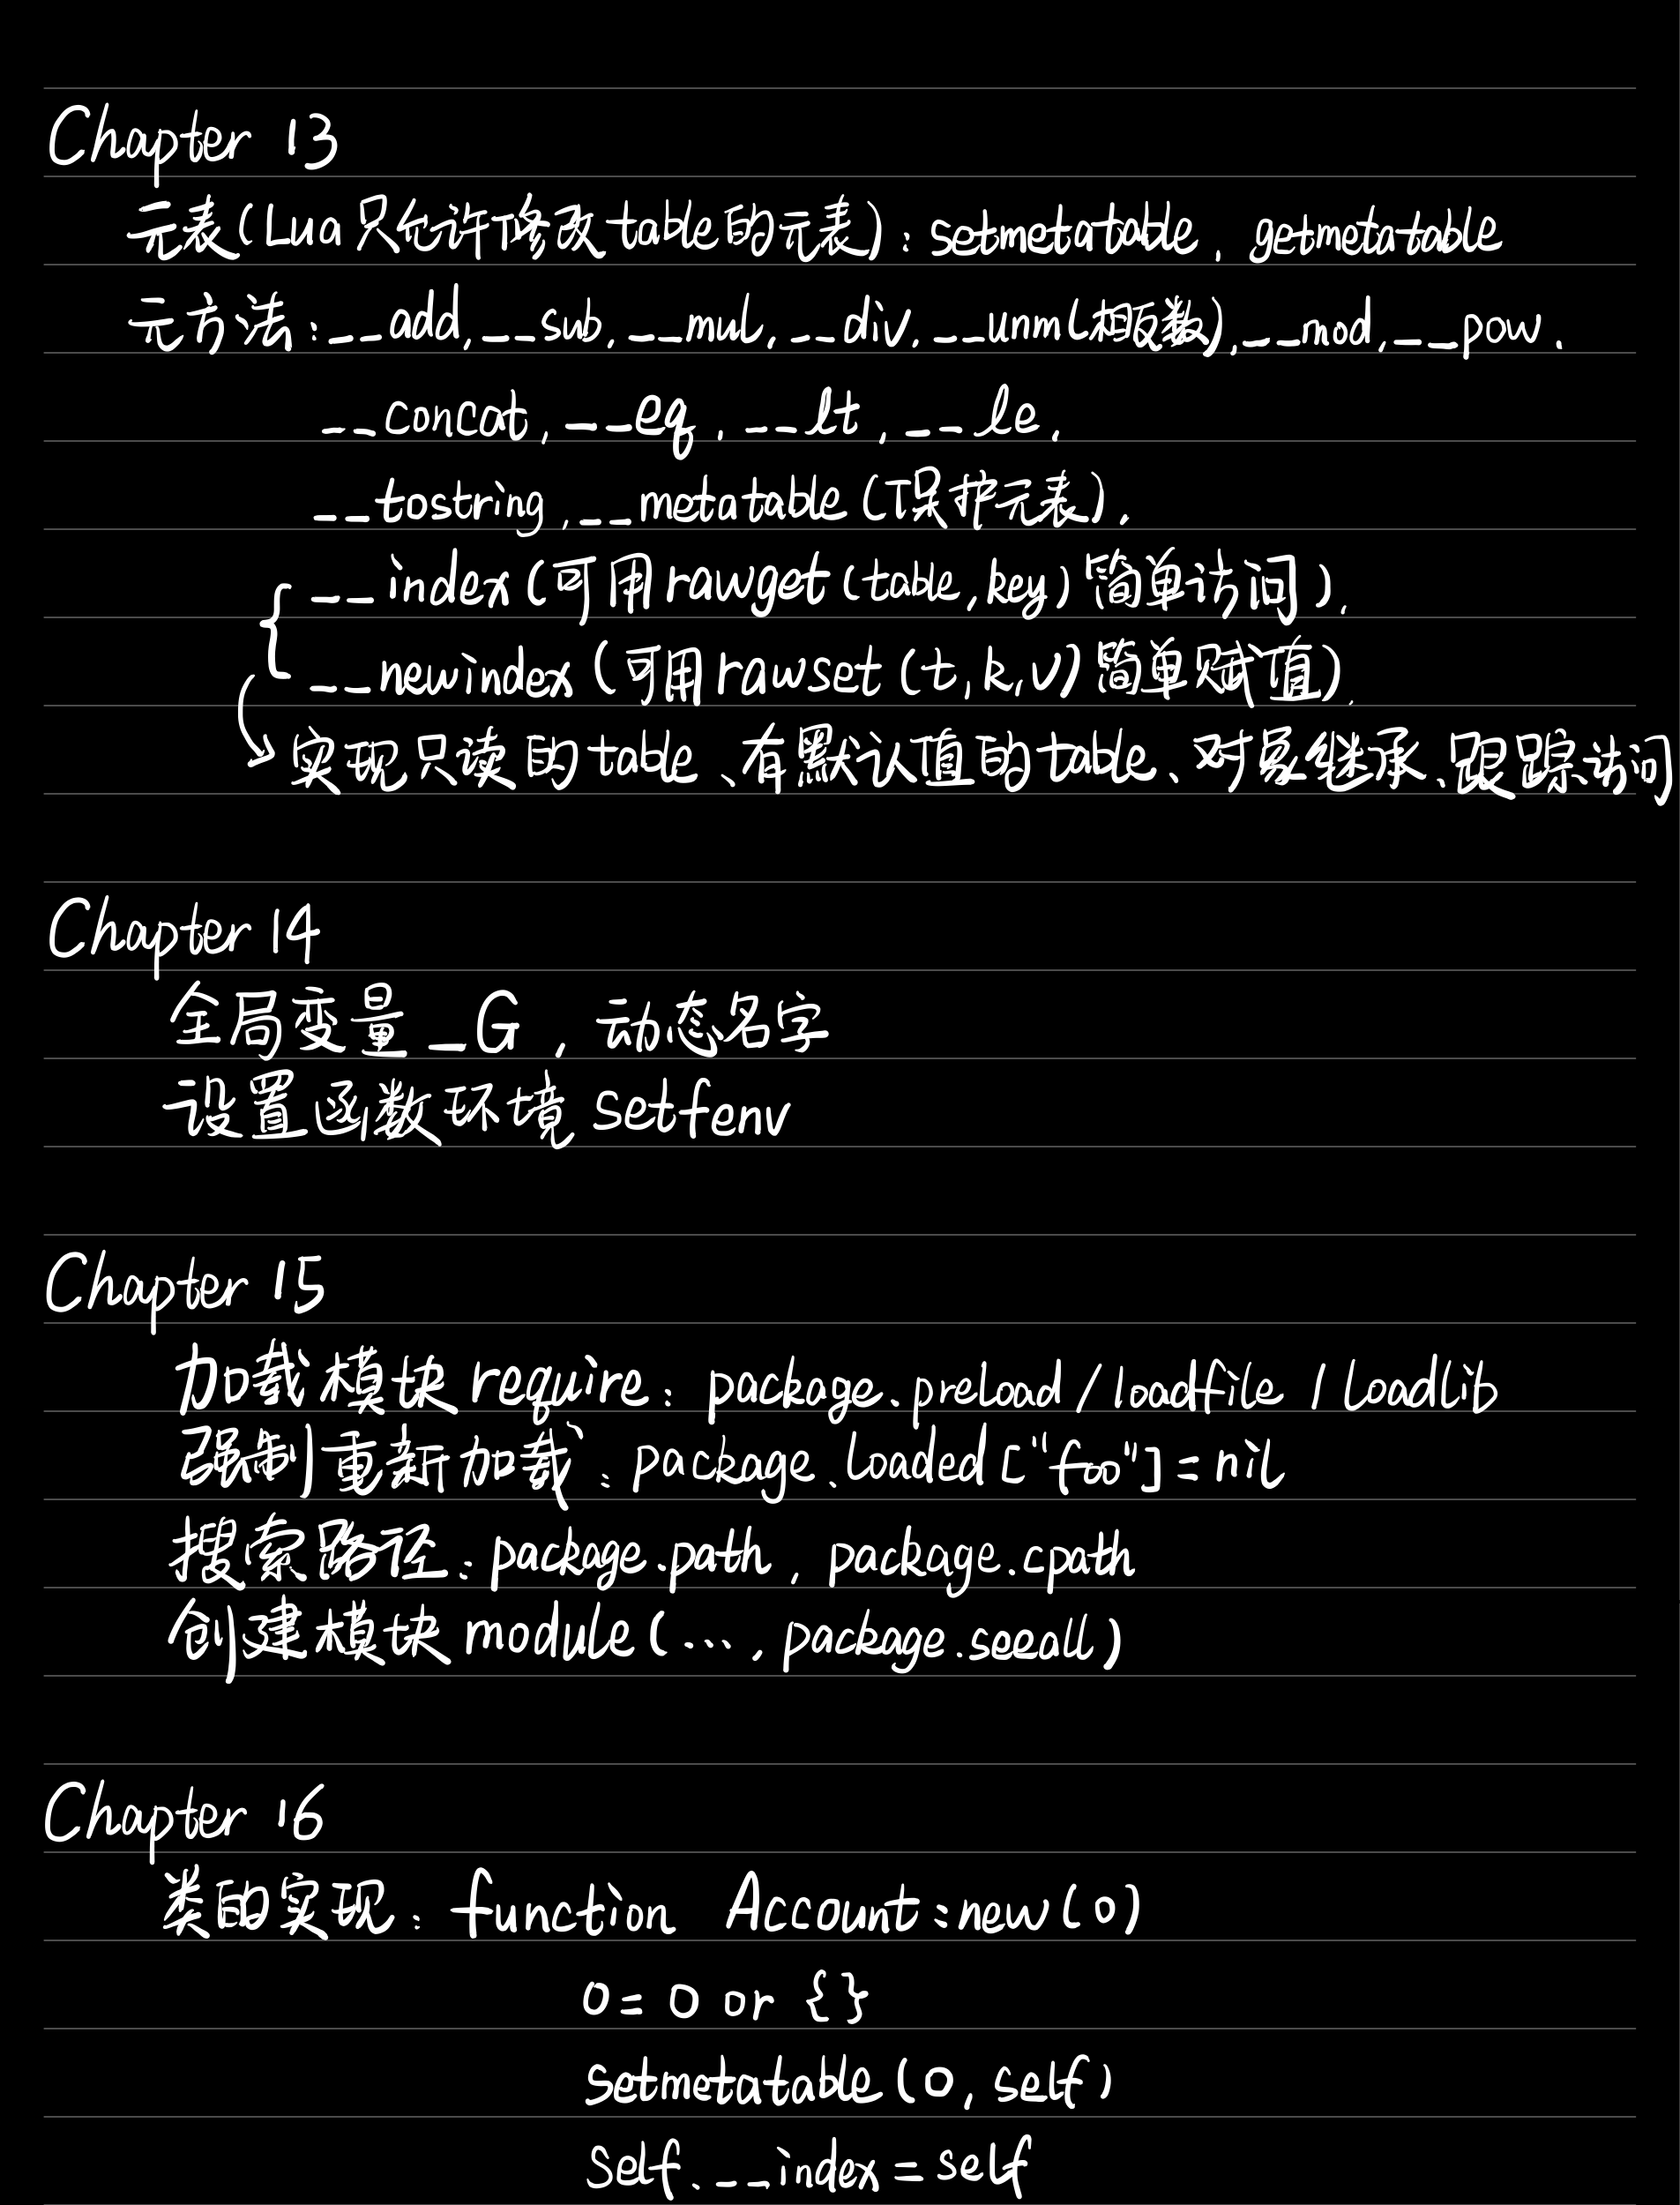 Chapter 13
元表(Lua只允许修改table的元表): setmetatable, getmetatable
元方法: __add, __sub, __mul, __div, __unm(相反数), __mod, __pow,
__concat, __eq, __lt, __le,
__tostring, __metatable(保护元表),
__index(可用rawget(table,key)简单访问),
__newindex(可用rawset(t,k,v)简单赋值),
实现只读的table、有默认值的table、对象继承、跟踪访问
Chapter 14
全局变量_G, 动态名字
设置函数环境setfenv
Chapter 15
加载模块require: package.preload/loadfile/loadlib
强制重新加载: package.loaded["foo"]=nil
搜索路径: package.path, package.cpath
创建模块module(..., package.seeall)
Chapter 16
类的实现: function Account:new(o)
o=o or {}
setmetatable(o, self)
self.__index=self